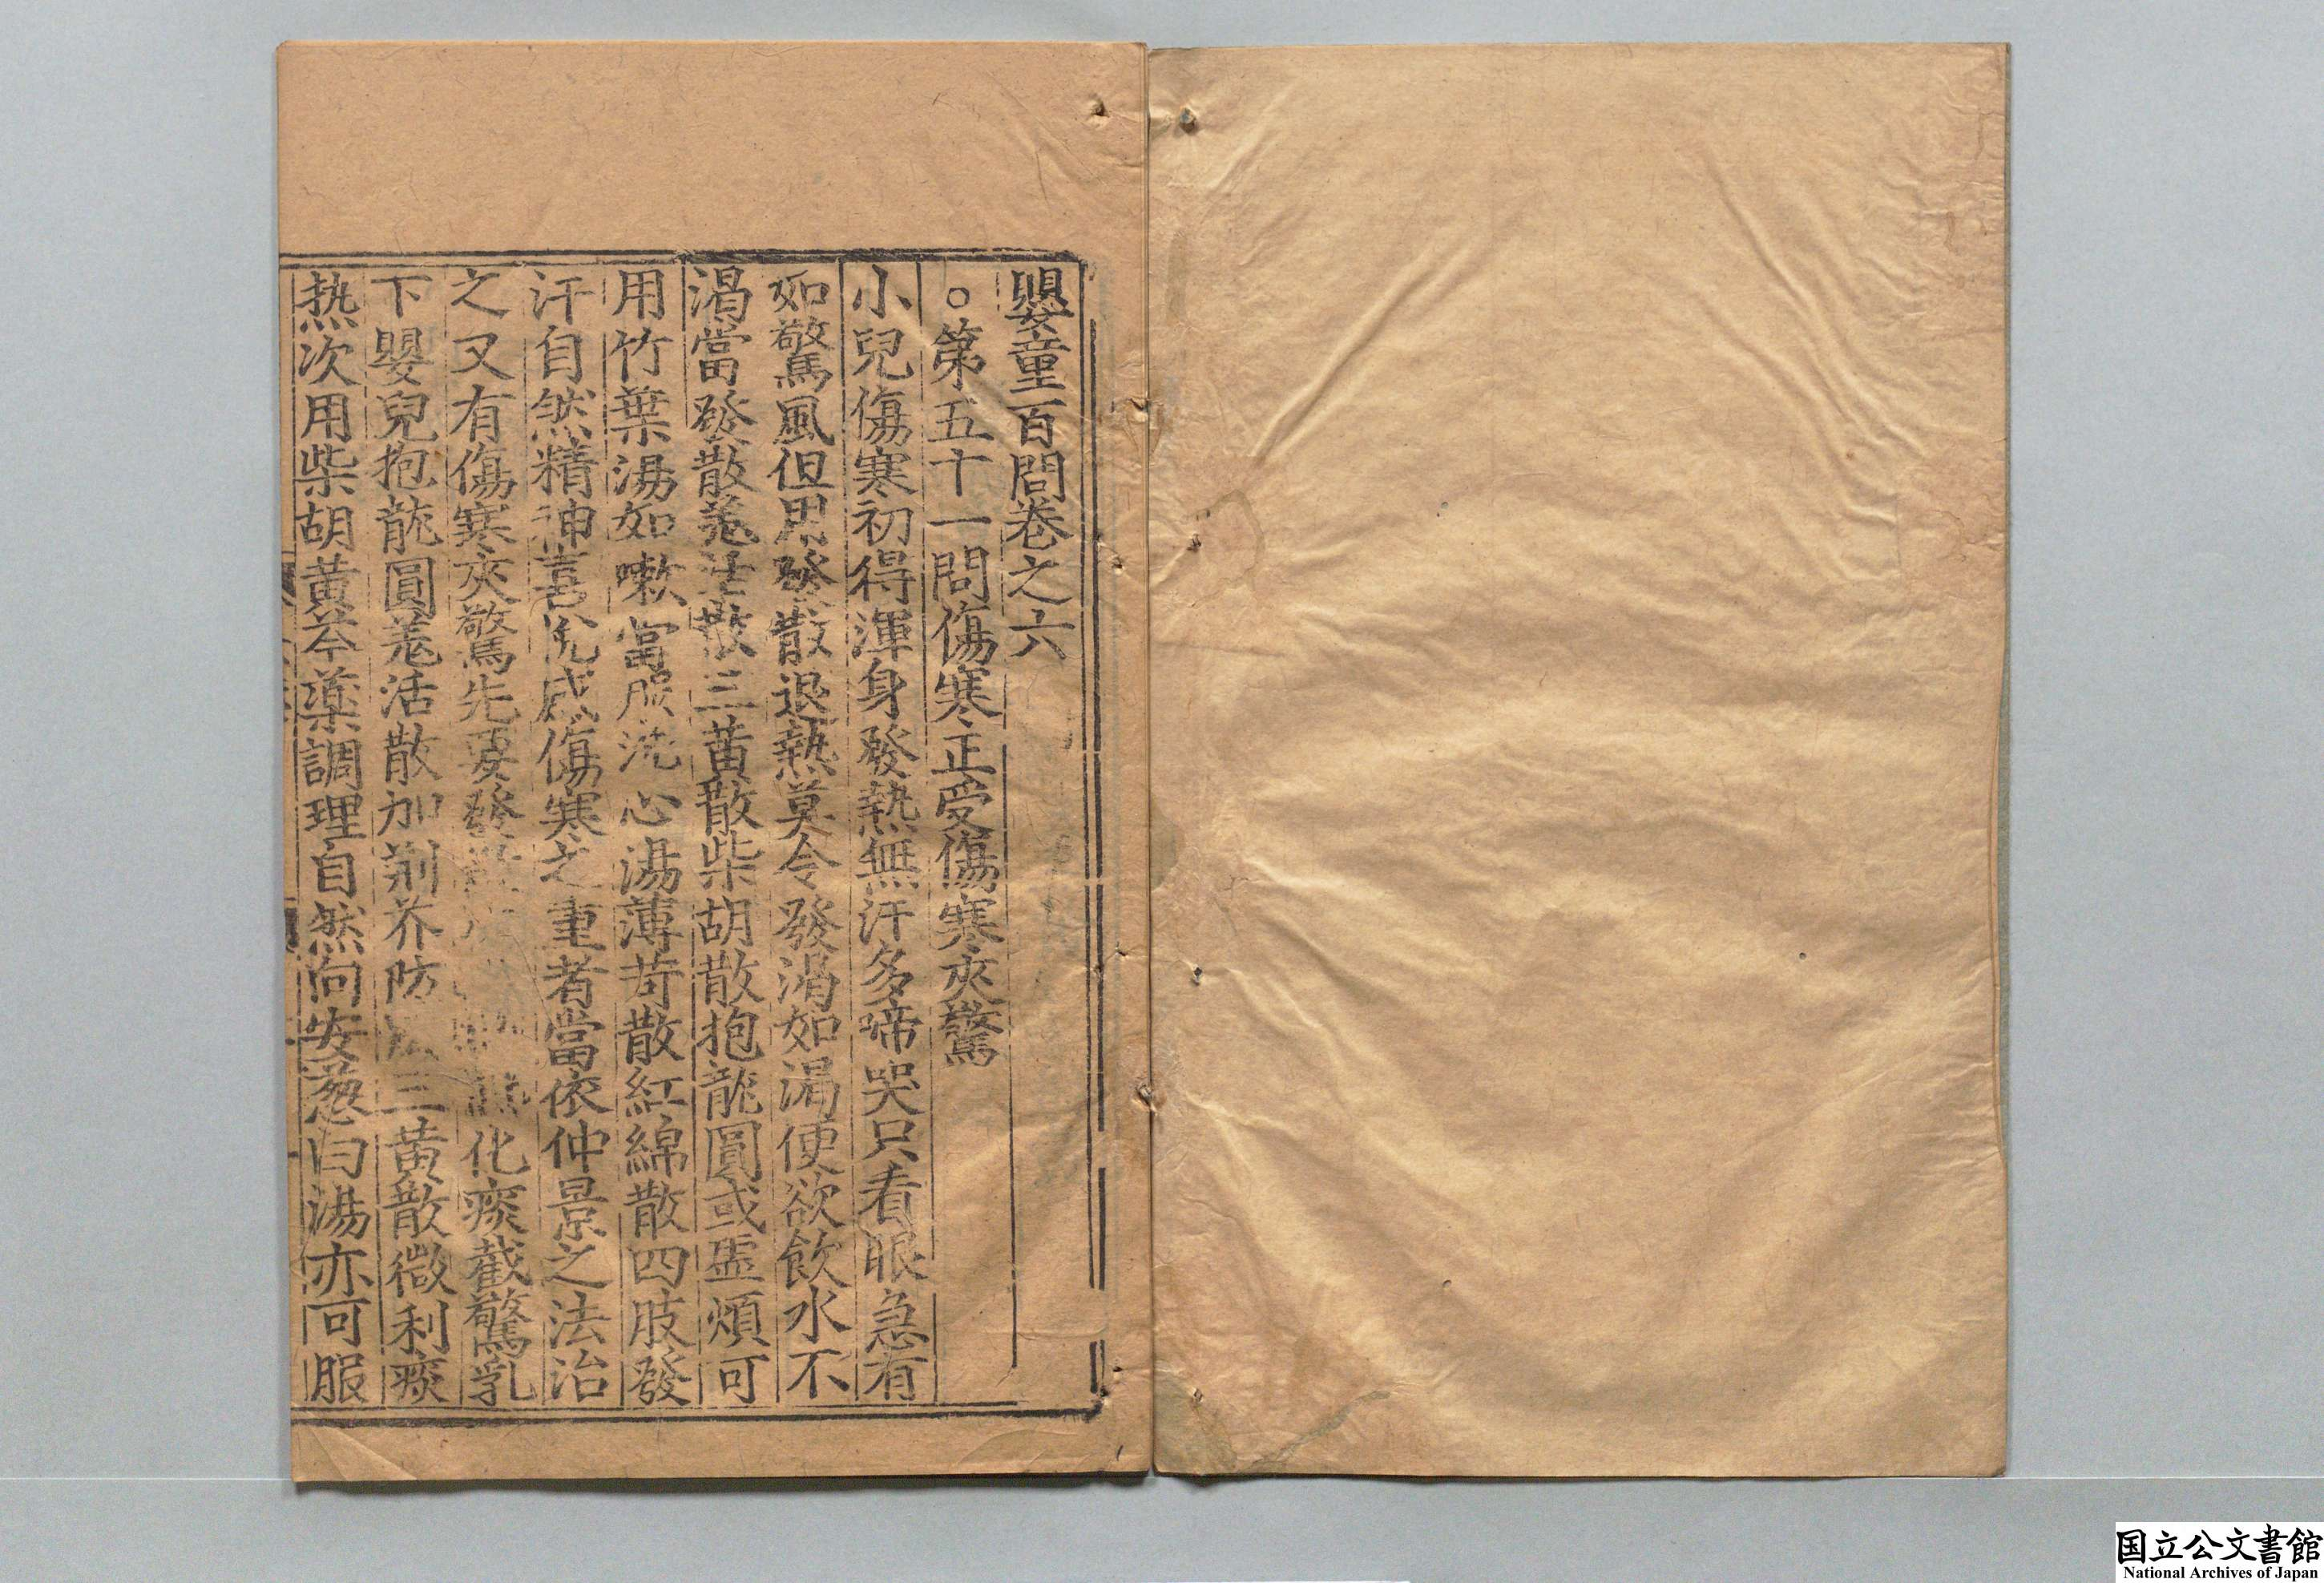 嬰童百問卷之六
○第五十一問傷寒正受傷寒夾驚
小兒傷寒初得渾身發熱無汗多啼哭只看眼急有
如驚風但用發散退熱莫令發渴如渴便欲飲水不
渴當發散羗活散三黃散柴胡散抱龍圓或虛煩可
用竹葉湯如嗽當服洗心湯薄苛散紅綿散四肢發
汗自然精神喜悅感傷寒之重者當依仲景之法治
之又有傷寒夾驚先要發 化痰截驚乳
下嬰兒抱龍圓羗活散加荊芥防 三黃散微利痰
热次用柴胡黃芩藥調理自然向安葱白湯亦可服
国立公文書館
National Archives of Japan